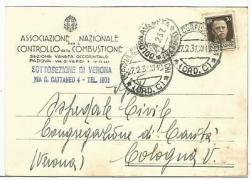 ASSOCIAZIONE NAZIONALE
CONTROLLO della COMBUSTIONE
SEZIONE VENETA OCCIDENTALE
PADOVA
SOTTOSEZIONE DI VERONA
VIA C. CATTANEO 4 - TEL. 1871
30
Ospedale Civile
Congregazione di Carità
Cologna V.
(Verona)